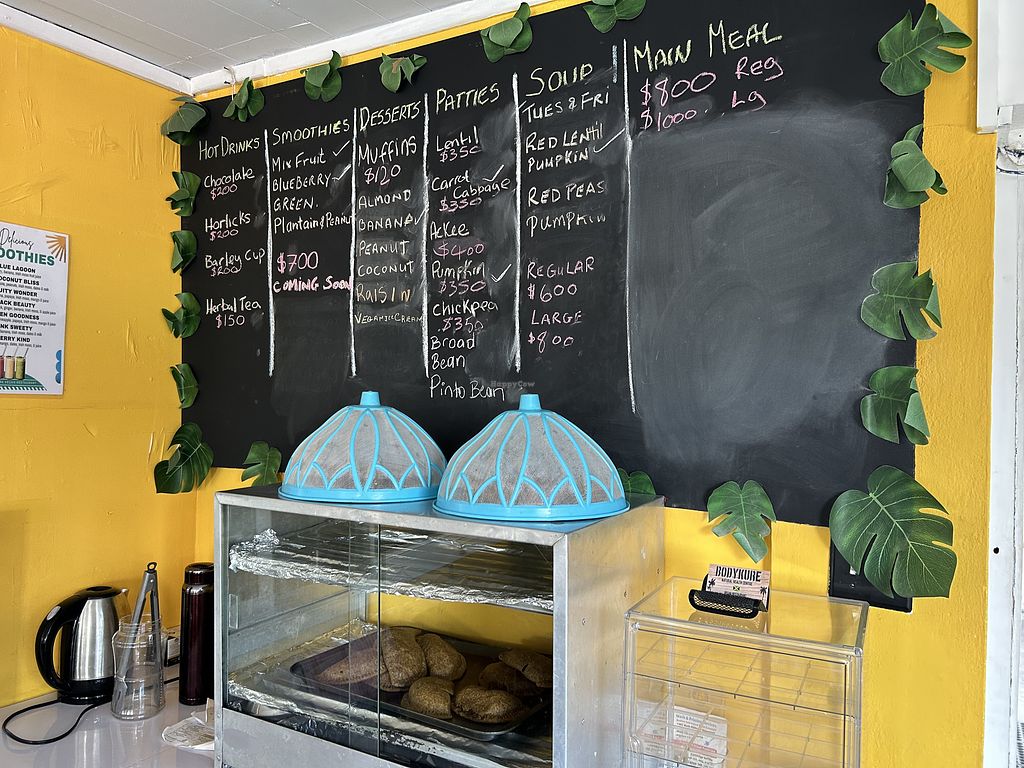 HOT DRINKS
Chocolate
$200
Horlicks
$200
Barley Cup
$200
Herbal Tea
$150
SMOOTHIES
Mix Fruit ✓
BLUEBERRY ✓
GREEN.
Plantain & Peanut
$700
COMING SOON
DESSERTS
MUFFINS
$120
ALMOND
BANANA ✓
PEANUT
COCONUT
RAISIN
VEGAN ICE CREAM
PATTIES
Lentil
$350
Carrot ✓
Cabbage
$350
AcKee
$400
Pumpkin ✓
$350
Chickpea
$350
Broad
Bean
Pinto Bean
SOUP
TUES & FRI
RED LENTIL
PUMPKIN ✓
RED PEAS
PUMPKIN
REGULAR
$600
LARGE
$800
MAIN MEAL
$800 Reg
$1000 Lg
Delicious
OOTHIES
LUE LAGOON
OCONUT BLISS
UITY WONDER
ACK BEAUTY
EN GOODNESS
NK SWEETY
ERRY KIND
BODYKURE
NATURAL HEALTH CENTRE
HappyCow